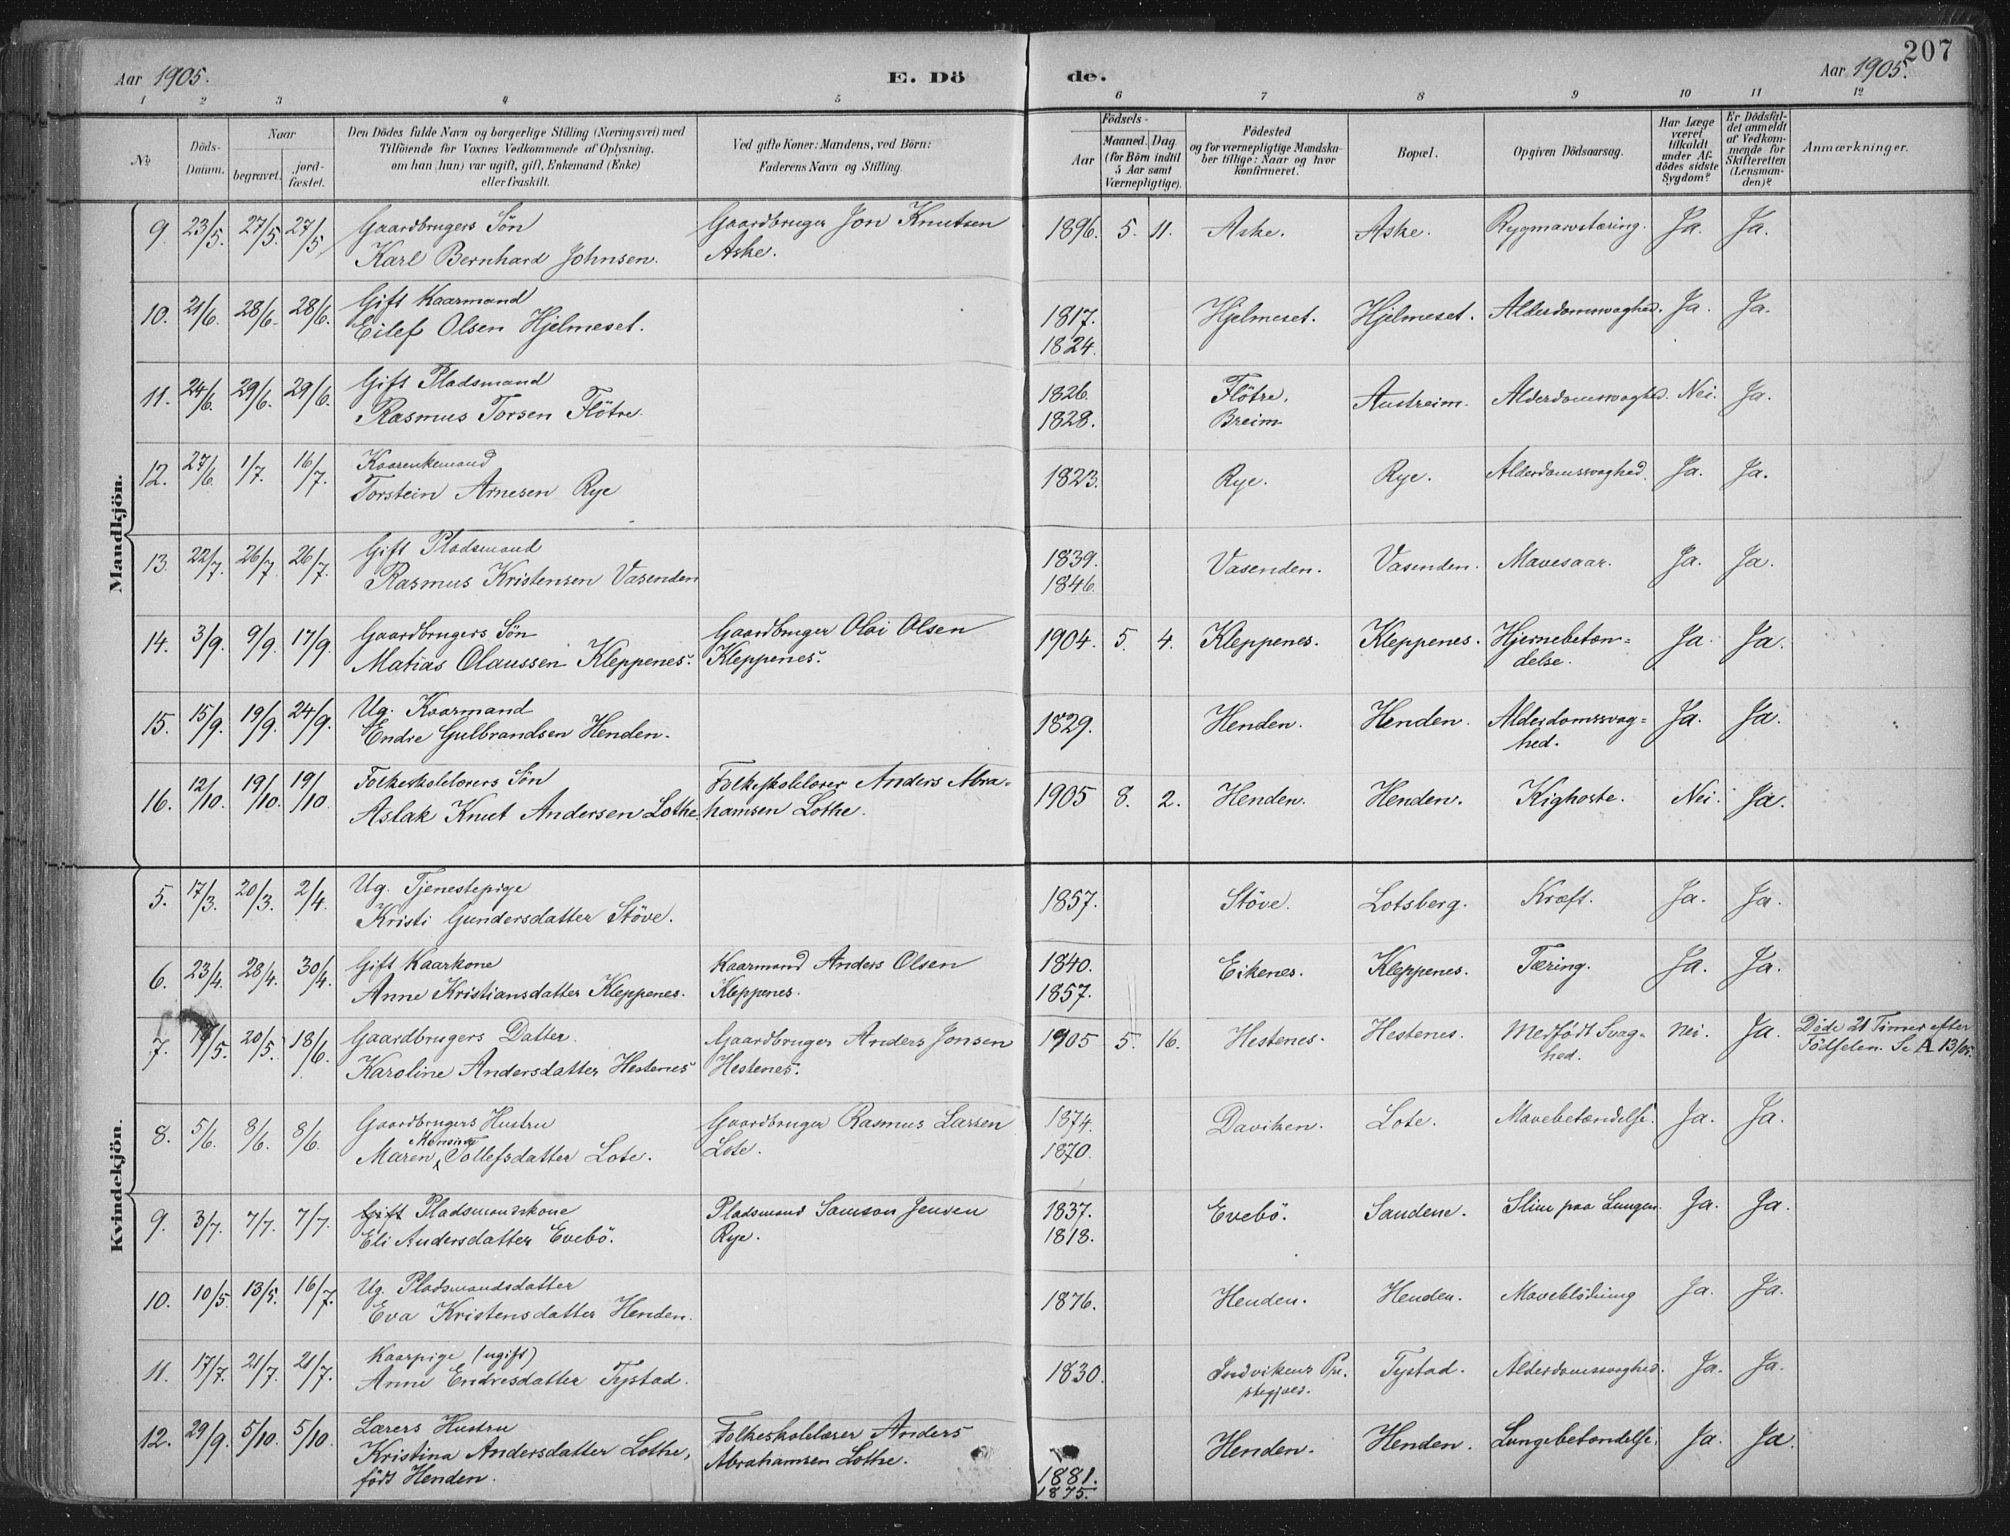 207
Aar 1905. E. Dö de. Aar 1905.
1 2 3 4 5 6 7 8 9 10 11 12
No
Döds-Datum.
Naar
begravet.
jord-fæstet.
Den Dödes fulde Navn og borgerlige Stilling (Næringsvei) med
Tilföiende for Voxnes Vedkommende af Oplysning,
om han (hun) var ugift, gift, Enkemand (Enke)
eller fraskilt.
Ved gifte Koner: Mandens, ved Börn:
Faderens Navn og Stilling.
Födsels-
Aar
Maaned. Dag
(for Börn indtil
5 Aar samt
Værnepligtige).
Födested
og for værnepligtige Mandska-
ber tillige: Naar og hvor
konfirmeret.
Bopæl.
Opgiven Dödsaarsag.
Har Læge
været
tilkaldt
under Af-
dödes sidste
Sygdom?
Er Dödsfal-
det anmeldt
af Vedkom-
mende for
Skifteretten
(Lensman-
den)?
Anmærkninger.
Mandkjön.
9. 23/5. 27/5. 27/5. Gaardbrugers Sön Gaardbruger Jon Knutsen 1896. 5. 11. Aske. Aske. Rygmarvstæring. Ja. Ja.
Karl Bernhard Johnsen. Aske.
10. 21/6. 28/6. 28/6. Gift Kaarmand 1817. Hjelmeset. Hjelmeset. Alderdomssvaghed. Ja. Ja.
Eilef Olsen Hjelmeset. 1824.
11. 24/6. 29/6. 29/6. Gift Pladsmand 1826. Flötre, Austreim. Alderdomssvaghed. Nei. Ja.
Rasmus Torsen Flötre. 1828. Breim
12. 27/6. 1/7. 16/7. Kaarenkemand 1823. Rye. Rye. Alderdomssvaghed. Ja. Ja.
Torstein Arnesen Rye
13. 22/7. 26/7. 26/7. Gift Pladsmand 1839. Vasenden. Vasenden. Mavesaar. Ja. Ja.
Rasmus Kristensen Vasenden 1846.
14. 3/9. 9/9. 17/9. Gaardbrugers Sön Gaardbruger Olai Olsen 1904. 5. 4. Kleppenes. Kleppenes. Hjernebetæn= Ja. Ja.
Matias Olaussen Kleppenes. Kleppenes. delse.
15. 15/9. 19/9. 24/9. Ug. Kaarmand 1829. Henden. Henden. Alderdomssvag= Ja. Ja.
Endre Gulbrandsen Henden. hed.
16. 12/10. 19/10. 19/10. Folkeskolelærers Sön Folkeskolelærer Anders Abra- 1905 8. 2. Henden. Henden. Kighoste. Nei. Ja.
Aslak Knut Andersen Lothe. hamsen Lothe.
Kvindekjön.
5. 17/3. 20/3. 2/4. Ug. Tjenestepige 1857. Stöve. Lotsberg. Kræft. Ja. Ja.
Kristi Gundersdatter Stöve.
6. 23/4. 28/4. 30/4. Gift Kaarkone Kaarmand Anders Olsen 1840. Eikenes. Kleppenes. Tæring. Ja. Ja.
Anne Kristiansdatter Kleppenes. Kleppenes. 1857.
7. 17/5. 20/5. 18/6. Gaardbrugers Datter Gaardbruger Anders Jonsen 1905 5 16. Hestenes. Hestenes. Medfödt Svag- Nei. Ja. Döde 21 Timer efter
Karoline Andersdatter Hestenes Hestenes. hed. Födselen. Se A 13/05.
8. 5/6. 8/6. 8/6. Gaardbrugers Hustru Gaardbruger Rasmus Larsen 1874. Daviken. Lote. Mavebetændelse. Ja. Ja.
Maren Tollefsdatter Lote. Lote. 1870.
9. 3/7. 7/7. 7/7. Gift Pladsmandskone Pladsmand Samson Jensen 1837. Evebö. Sandene. Slim paa Lungen. Ja. Ja.
Eli Andersdatter Evebö. Rye. 1818.
10. 10/5. 13/5. 16/7. Ug. Pladsmandsdatter 1876. Henden. Henden. Maveblödning Ja. Ja.
Eva Kristensdatter Henden.
11. 17/7. 21/7. 21/7. Kaarpige (ugift) 1830. Indvikens Pre- Tystad. Alderdomssvaghed. Ja. Ja.
Anne Endresdatter Tystad. stegjæld.
12. 29/9. 5/10. 5/10. Lærers Hustru Folkeskolelærer Anders Henden. Henden. Lungebetændelse. Ja. Ja.
Kristina Andersdatter Lothe, Abrahamsen Lothe. 1881.
födt Henden. 1875.